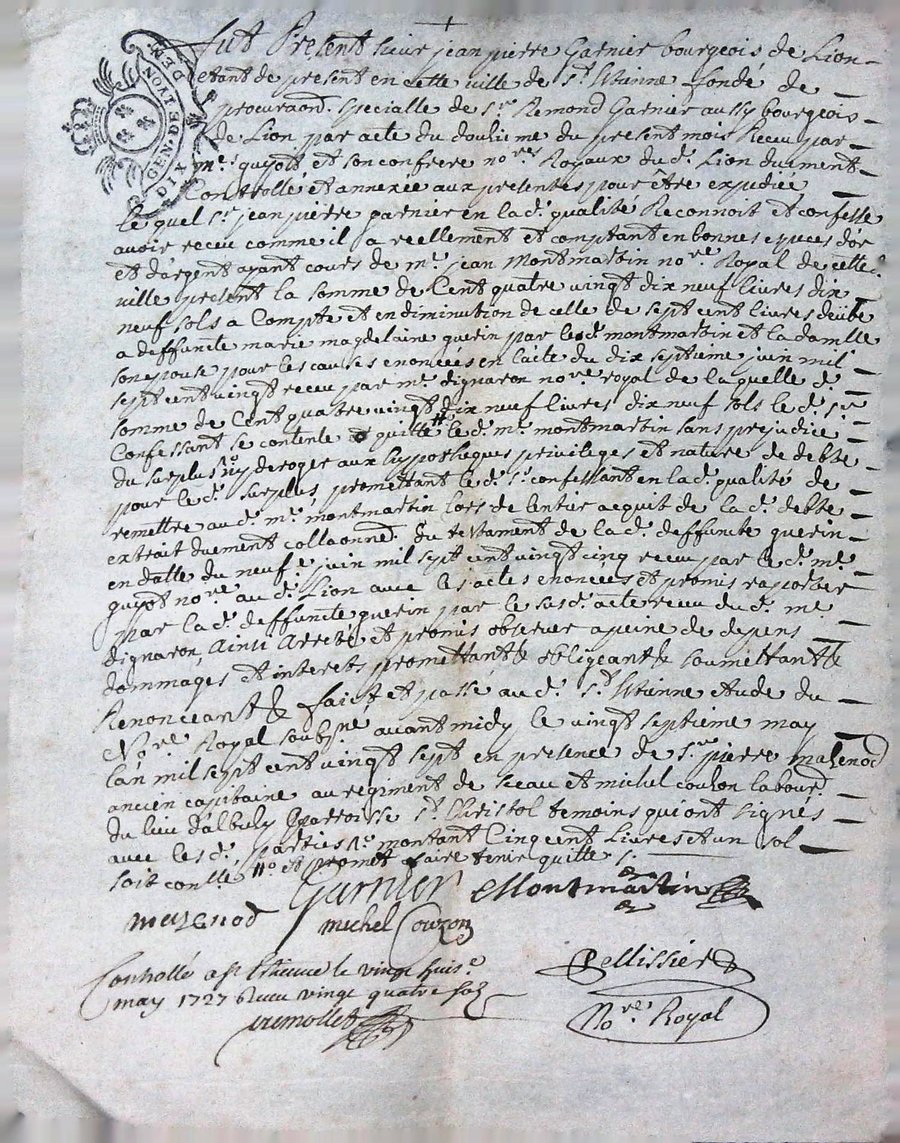 GEN. DE LYON DIX DEN.
fut Present sieur jean pierre Garnier bourgeois de Lion
Etant de present en cette ville de St Etienne fondé de
procuraon. specialle de sr. Remond Garnier aussy bourgeois
de Lion par acte du douzieme du present mois Receu par
me. guyot et son confrere nores Royaux dud. Lion duement
Controllé et annexée aux presentes pour être expediée
Le quel sr. jean pierre garnier en lad. qualité Reconnoit et confesse
avoir receu comme il a reellement et comptant en bonnes especes d'or
et d'argent ayant cours de me. jean Montmartin nore. Royal de cette
ville present la somme de Cent quatre vingt dix neuf livres dix
neuf sols a Compte et en diminution de celle de sept cent livres deube
a deffuncte marie magdelaine guerin par led. montmartin et la damlle
son epouse pour les causes enoncées en l'acte du dix septieme juin mil
sept cent vingt receu par me. dignaron nore. royal de la quelle d.
somme de Cent quatre vingt dix neuf livres dix neuf sols le d. sr.
Confessant se contente et quitte # le d. me. montmartin sans prejudice
du surplus ny deroger aux hypotheques privileges et nature de debte
pour le d. surplus, promettant le d. sr. confessant en la d. qualité de
remettre aud. me. montmartin lors de l'entier acquit de la d. debte
extrait duement collaonné du testament de la d. deffuncte guerin
en datte du neufe juin mil sept cent vingt cinq receu par le d. me.
guyot nore. aud. Lion avec les actes enoncées et promis raporter
par la d. deffuncte guerin par le susd. acte receu dud. me
dignaron, Ainsi Arreté et promis observer a peine de depens
dommages et interets promettant & obligeant & soumettant &
Renonceant & faict et passé aud. St. Etienne etude du
Nore Royal soubsne avant midy le vingt septieme may
l'an mil sept cent vingt sept en presence de sr. pierre mazenod
ancien capitaine au regiment de sceau et michel couzon labourr.
du lieu d'albuly parroisse St. Christol temoins qui ont signés
avec les d. parties montant Cinq cent Livres et un sol
soit conlle. # et promet faire tenir quitte
Garnier Montmartin
mazenod michel Couzon
Controllé a st Etienne le vingt huite
may 1727 Receu vingt quatre sols
Pellissier
Nore. Royal